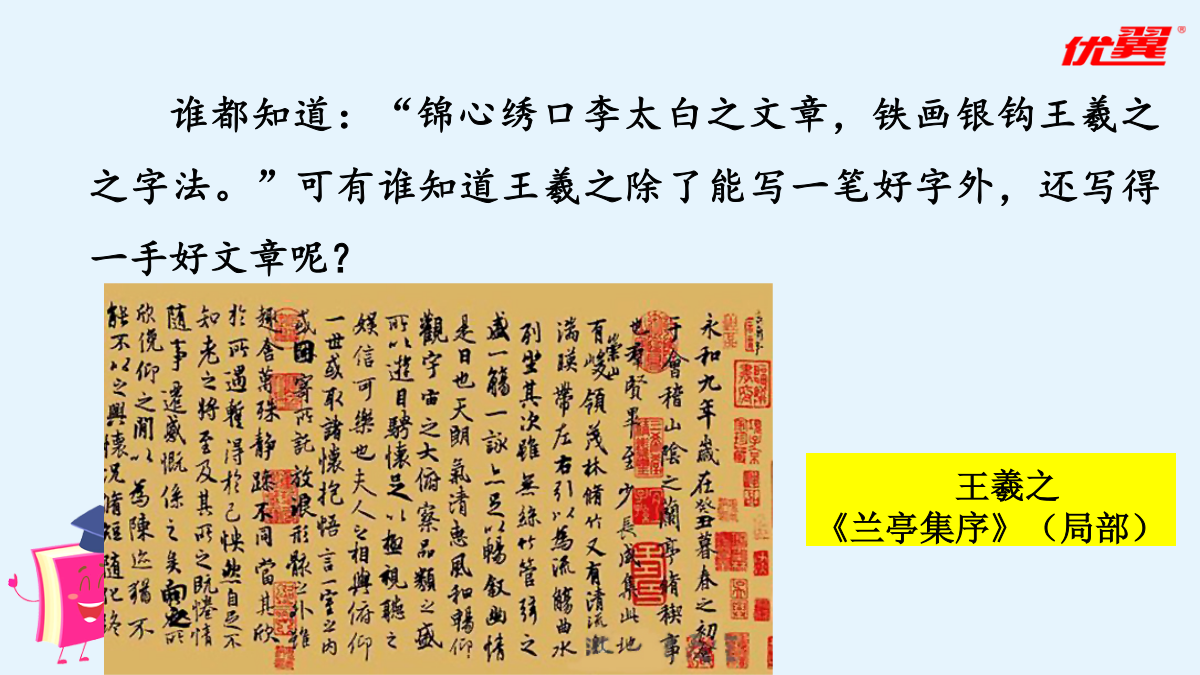 优翼®
谁都知道：“锦心绣口李太白之文章，铁画银钩王羲之
之字法。”可有谁知道王羲之除了能写一笔好字外，还写得
一手好文章呢？
永和九年歲在癸丑暮春之初會
于會稽山陰之蘭亭脩稧事
也羣賢畢至少長咸集此地
有崇山峻領茂林脩竹又有清流激
湍暎帶左右引以為流觴曲水
列坐其次雖無絲竹管弦之
盛一觴一詠亦足以暢敘幽情
是日也天朗氣清惠風和暢仰
觀宇宙之大俯察品類之盛
所以遊目騁懷足以極視聽之
娛信可樂也夫人之相與俯仰
一世或取諸懷抱悟言一室之內
或因寄所託放浪形骸之外雖
趣舍萬殊靜躁不同當其欣
於所遇暫得於己怏然自足不
知老之將至及其所之既惓情
隨事遷感慨係之矣向之所
欣俛仰之閒以為陳迹猶不
能不以之興懷況脩短隨化終
王羲之
《兰亭集序》（局部）